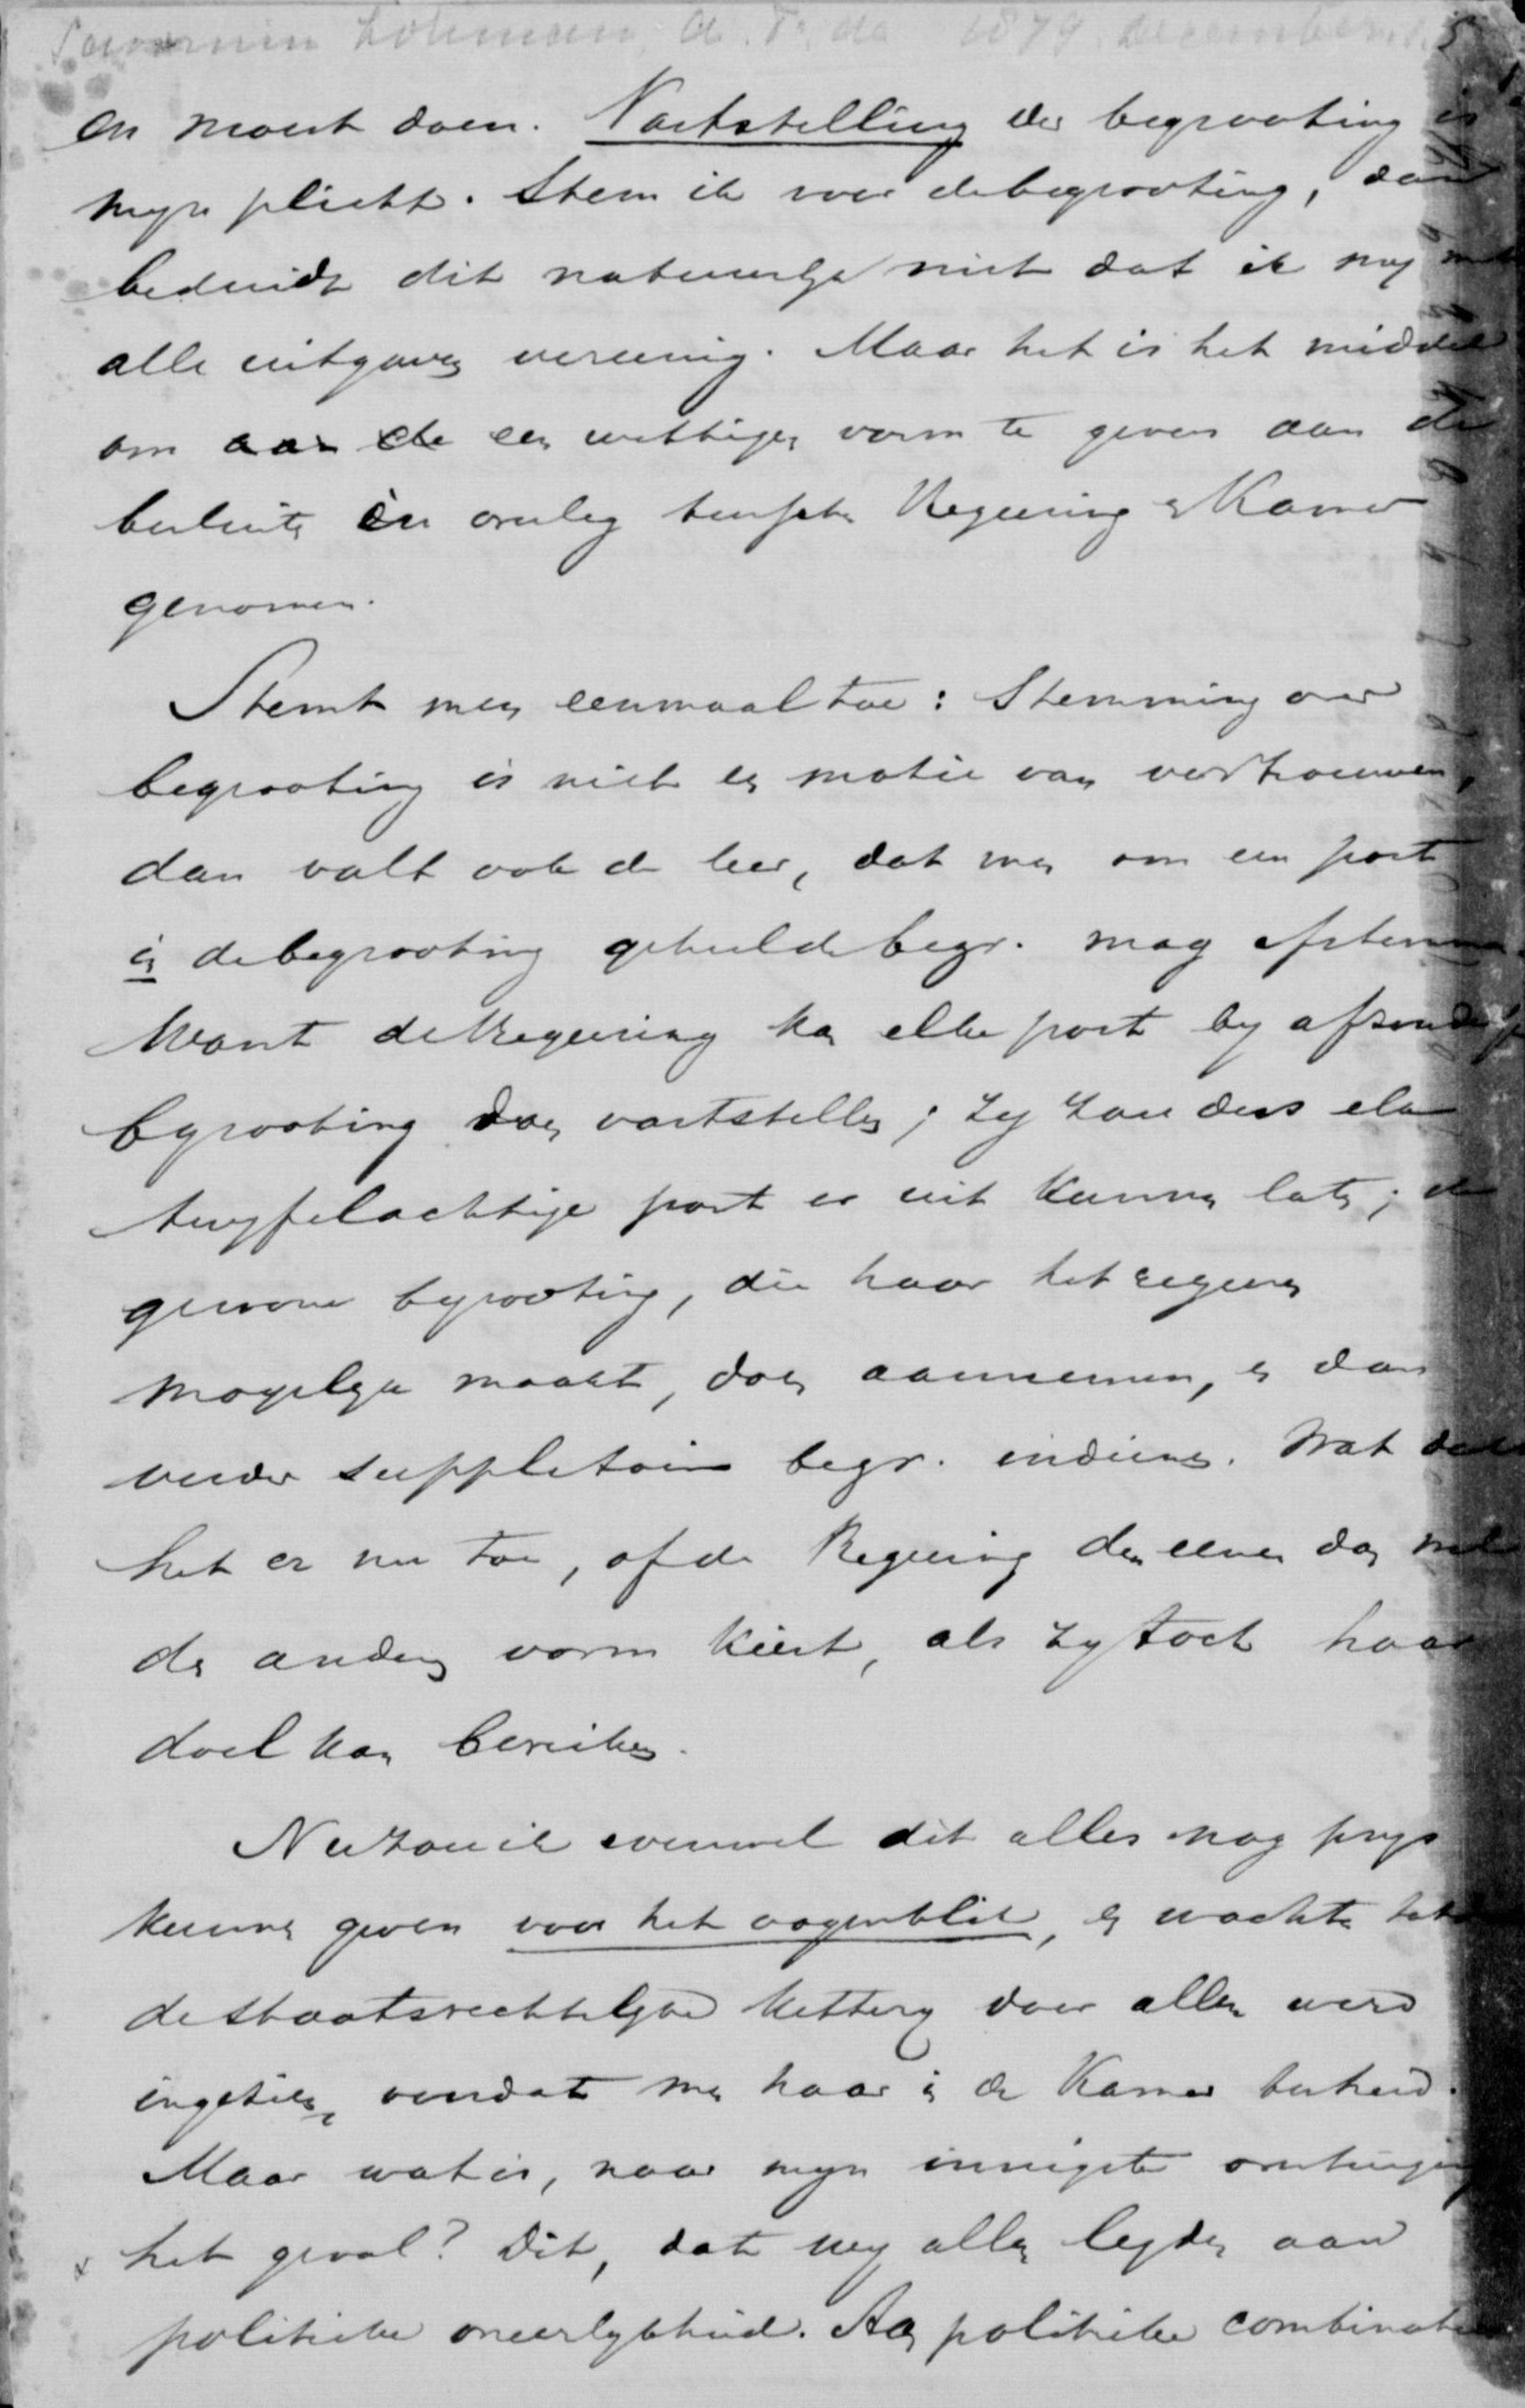 Savornin Lohman, A. F. de 1879 December
en moest doen. Vaststelling der begrooting is
mijn plicht. Stem ik voor de begrooting, dan
beduidt dit natuurlijk niet dat ik mij met
alle uitgaven vereenig. Maar het is het middel
om aan de een wettigen vorm te geven aan de
besluiten in overleg tusschen Regeering & Kamer
genomen.
Stemt men eenmaal toe: Stemming over
begrooting is niet een motie van vertrouwen,
dan valt ook de leer, dat men om een post
in de begrooting geheel de begr. mag afstemmen.
Want de Regeering kan elke post bij afzonderlijke
begrooting doen vaststellen; zij zou dus elke
twijfelachtige post er uit kunnen laten; de
gewone begrooting, die haar het regeeren
mogelijk maakt, doen aannemen, en dan
verder suppletoire begr. indienen. Wat doet
het er nu toe, of de Regeering den eenen dan wel
den anderen vorm kiest, als zij toch haar
doel kan bereiken.
Nu zou ik evenwel dit alles nog prijs
kunnen geven voor het oogenblik, en wachten tot
de staatsrechtelijke ketterij door allen werd
ingezien, omdat men haar in de Kamer
Maar wat is, naar mijn innigste overtuiging
het geval? Dit, dat wij allen lijden aan
politieke oneerlijkheid. Aan politieke combinatien.